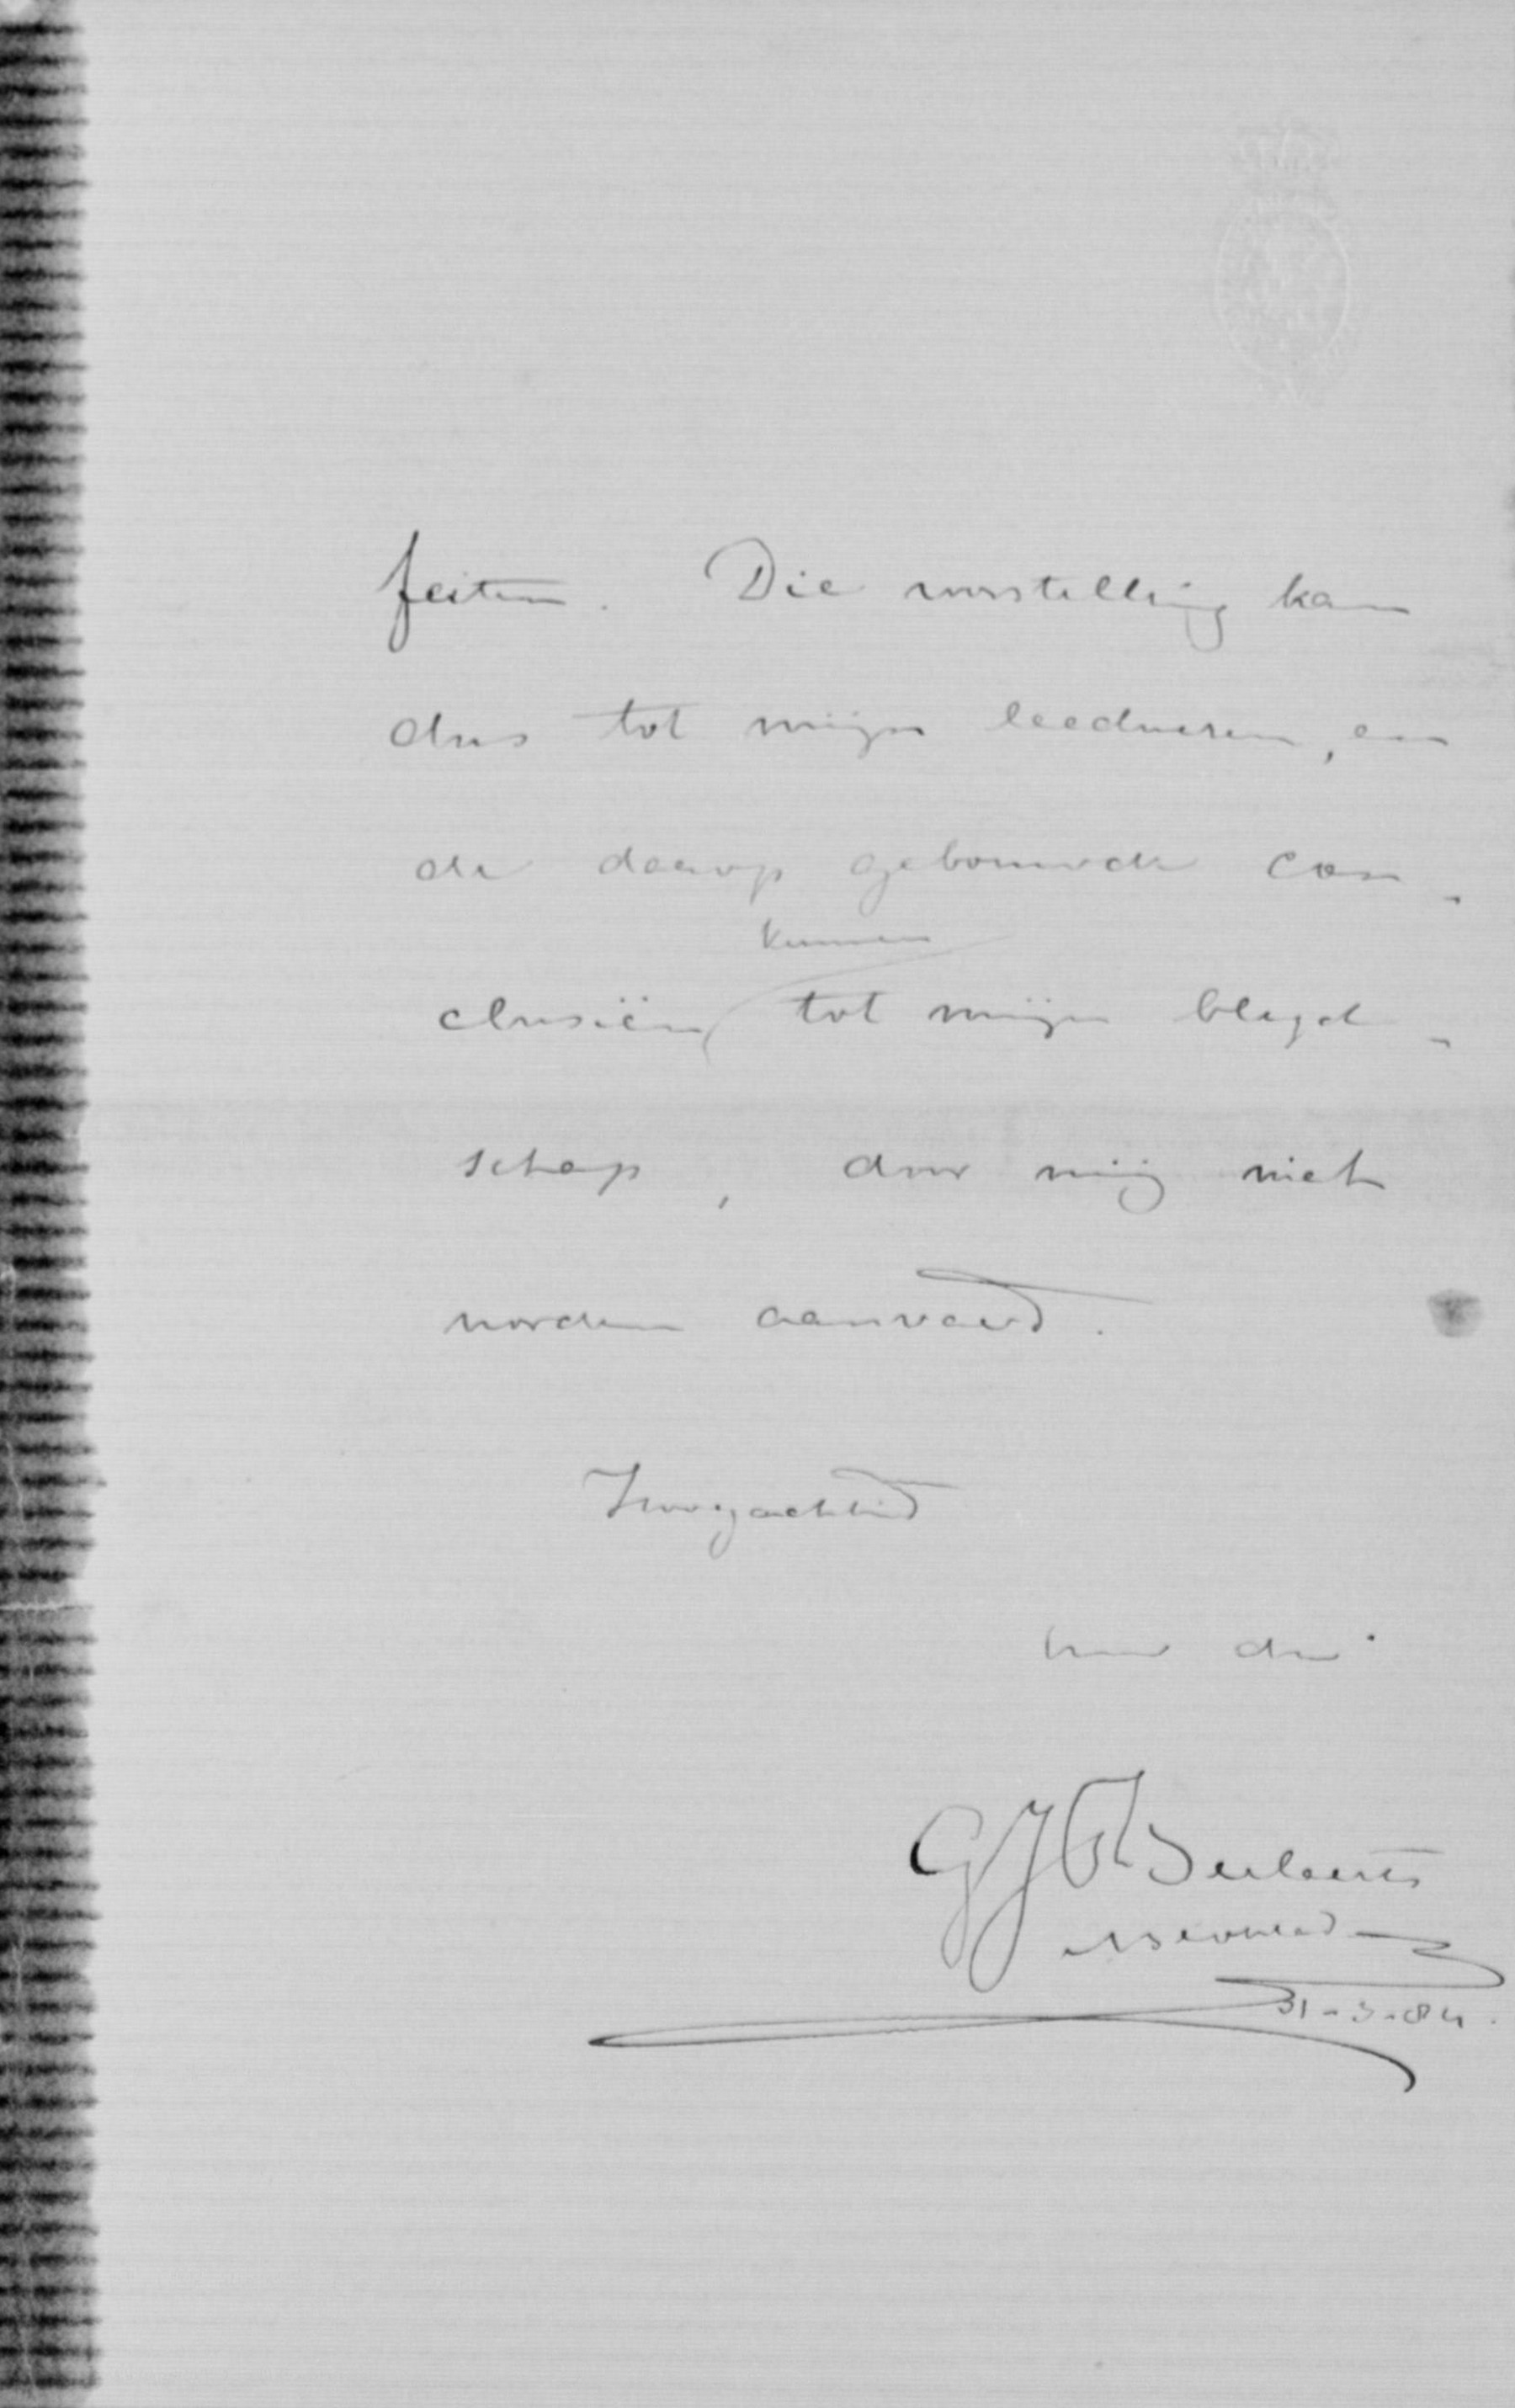 feiten. Die voorstelling kan
dus tot mijn leedwezen, en
de daarop gebouwde con-
kunnen
clusiën tot mijn blijd-
schap, door mij niet
worden aanvaard.
Hoogachtend
Uw dr
GJTh Beelaerts
31-3-84.